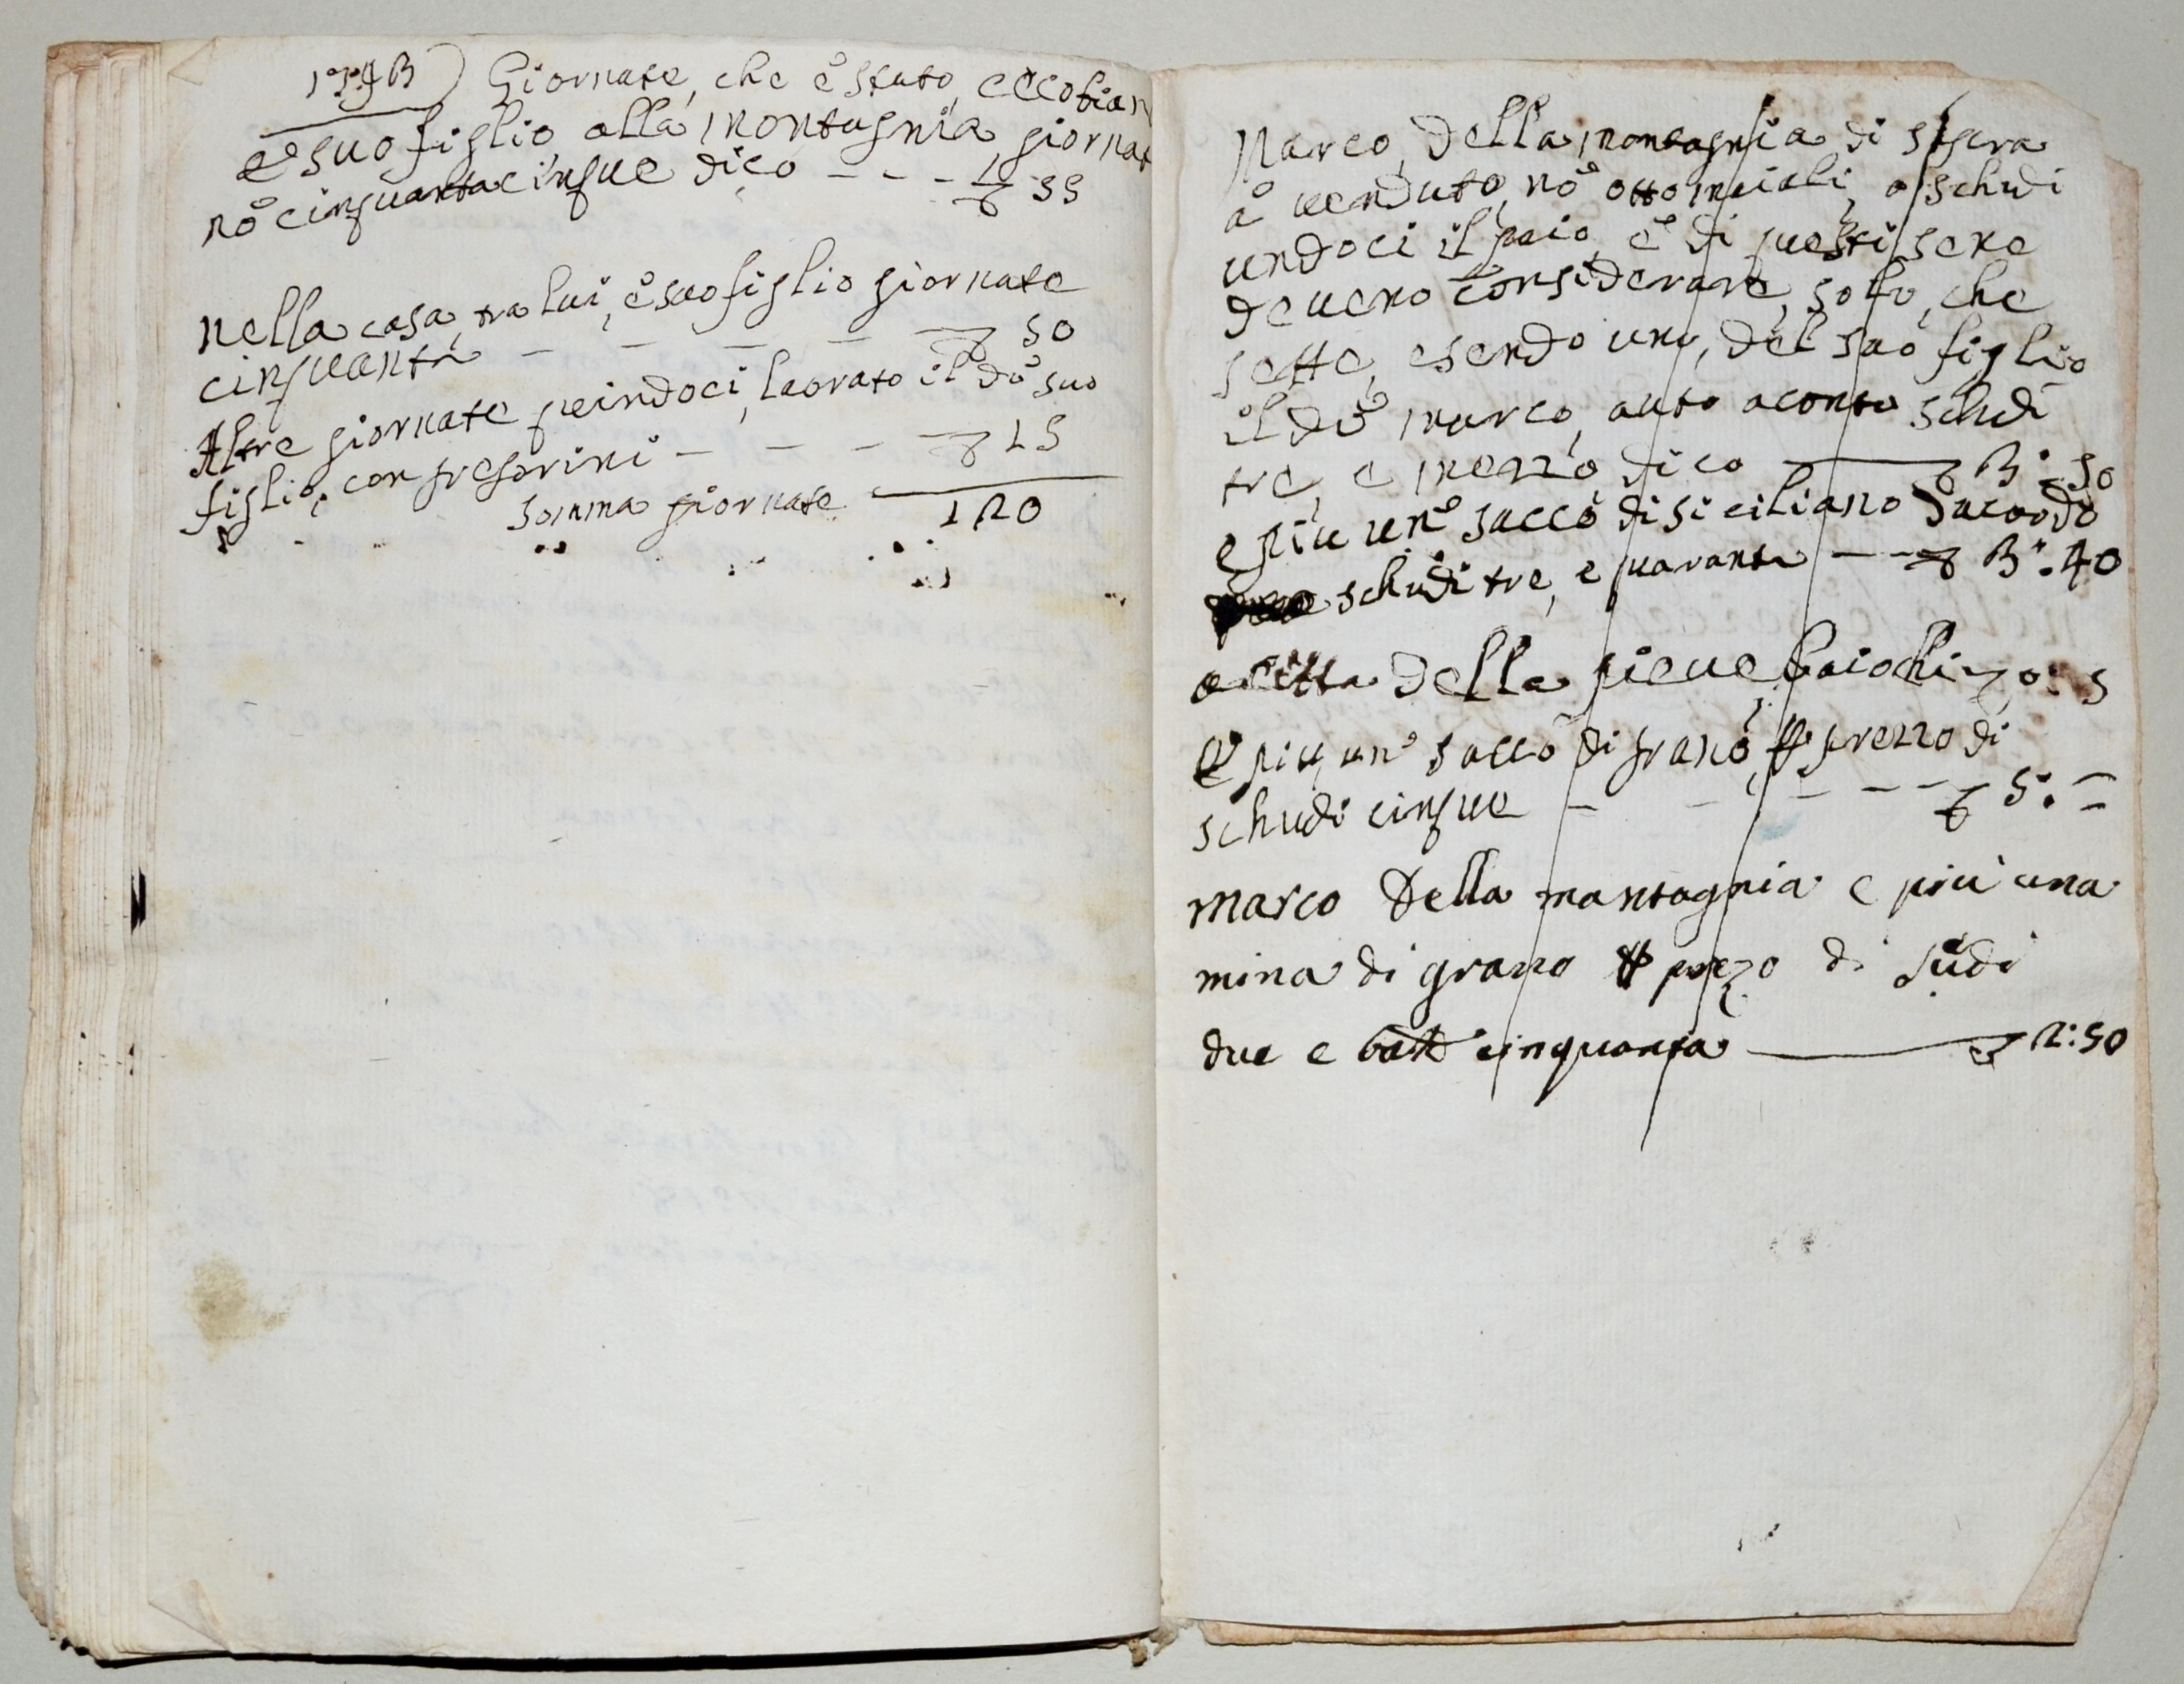 1793) Giornate, che è stato, eccobian
e suo figlio alla montagnia giornat
nº cinquantacinque dico - - - 55
nella casa, tra lui, è suo figlio giornate
cinquanta - - - - - 50
Altre giornate queindoci, laorato il dº suo
figlio, con gregorini - - - 15
somma giornate 120
Marco della montagnia di
à venduto, nº otto maiali, a schudi
undoci il paio, è di questi sene
deveno considerare, solo, che
sette, esendo uno, del suo figlio
il dº marco, auto aconto schudi
tre, e mezzo dico 3: 50
e piu unº sacco di siciliano dacordo
schudi tre, e quaranta - - 3: 40
a citta della pieve baiochi 0: 5
E piu, unº sacco di grano, prezzo di
schudi cinque - - - - - 5: =
marco della mantagnia e più una
mina di grano prezo di sudi
due e cinquanta 2:50